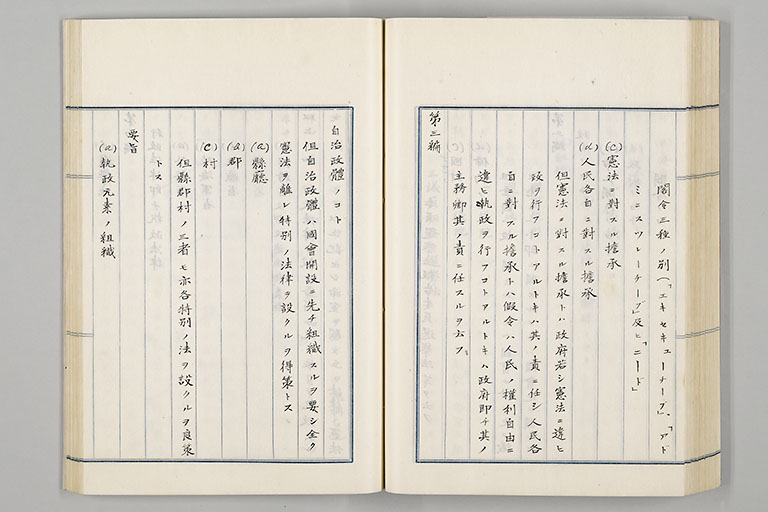 閣令三種ノ別(「エキセキューチーブ」、「アド
ミニスツレーチーブ」及ヒ「ニード」
(c)憲法ニ對スル擔承
(d)人民各自ニ對スル擔承
但憲法ニ對スル擔承トハ政府若シ憲法ニ違ヒ
政ヲ行フコトアルトキハ其ノ責ニ任シ人民各
自ニ對スル擔承トハ假令ハ人民ノ權利自由ニ
違ヒ執政ヲ行フコトアルトキハ政府即チ其ノ
主務卿其ノ責ニ任スルヲ云フ。
第三編
自治政體ノコト
但自治政體ハ國會開設ニ先チ組織スルヲ要シ全ク
憲法ヲ離レ特別ノ法律ヲ設クルヲ得策トス
(a)縣廳
(b)郡
(c)村
但縣郡村ノ三者モ亦各特別ノ法ヲ設クルヲ良策
トス
要旨
(a)執政元素ノ組織